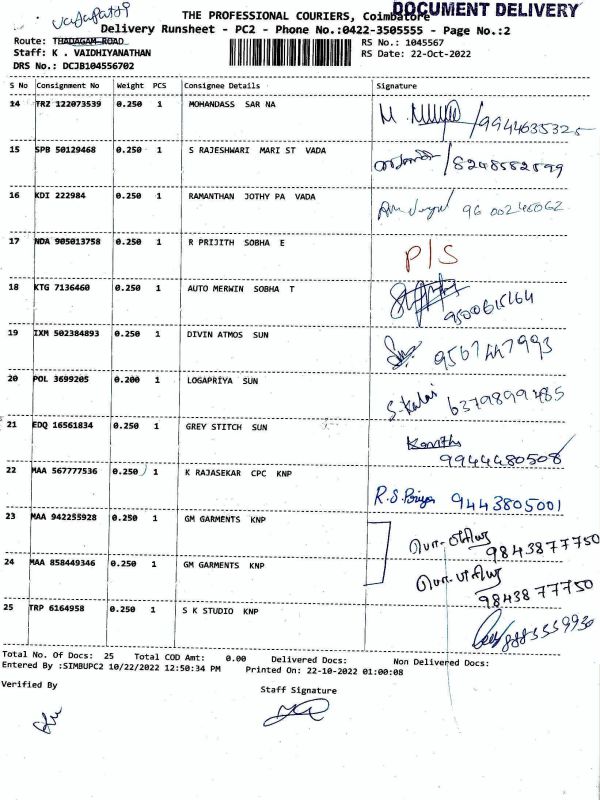 DOCUMENT DELIVERY
THE PROFESSIONAL COURIERS, Coimbatore
Delivery Runsheet - PC2 - Phone No.:0422-3505555 - Page No.:2
Route: THADAGAM ROAD
RS No.: 1045567
Staff: K . VAIDHIYANATHAN
RS Date: 22-Oct-2022
DRS No.: DCJB104556702
S No Consignment No Weight PCS Consignee Details Signature
14 TRZ 122073539 0.250 1 MOHANDASS SAR NA
/9944635325
15 SPB 50129468 0.250 1 S RAJESHWARI MARI ST VADA
/8248582899
16 KDI 222984 0.250 1 RAMANTHAN JOTHY PA VADA
96 00246062
17 NDA 905013758 0.250 1 R PRIJITH SOBHA E
P/S
18 KTG 7136460 0.250 1 AUTO MERWIN SOBHA T
9500615164
19 IXM 502384893 0.250 1 DIVIN ATMOS SUN
9567447993
20 POL 3699205 0.200 1 LOGAPRIYA SUN
S.Kalai 6379899485
21 EDQ 16561834 0.250 1 GREY STITCH SUN
Kavitha
9944480508
22 MAA 567777536 0.250 1 K RAJASEKAR CPC KNP
R.S.Priya 9443805001
23 MAA 942255928 0.250 1 GM GARMENTS KNP
9843877750
24 MAA 858449346 0.250 1 GM GARMENTS KNP
9843877750
25 TRP 6164958 0.250 1 S K STUDIO KNP
Total No. Of Docs: 25 Total COD Amt: 0.00 Delivered Docs: Non Delivered Docs:
Entered By :SIMBUPC2 10/22/2022 12:50:34 PM Printed On: 22-10-2022 01:00:08
Verified By
Staff Signature